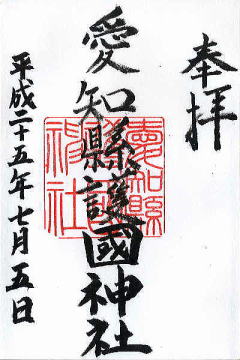 奉拝
愛知縣護國神社
平成二十五年七月五日
愛知縣護國神社